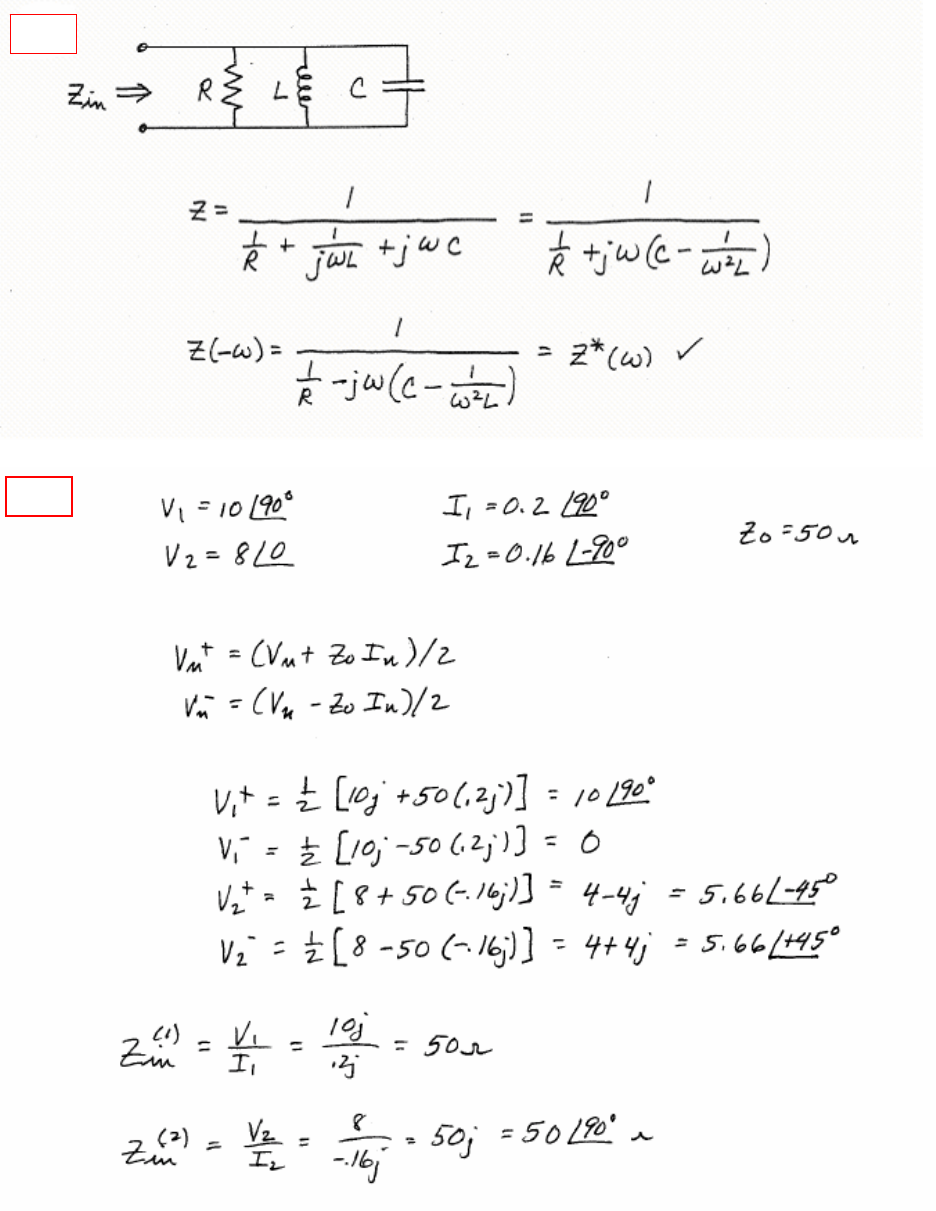 Zin ⇒ R L C
Z = 1 / (1/R + 1/(jωL) + jωC) = 1 / (1/R + jω(C - 1/(ω²L)))
Z(-ω) = 1 / (1/R - jω(C - 1/(ω²L))) = Z*(ω) ✓
V₁ = 10 ∠90° I₁ = 0.2 ∠90° Z₀ = 50 Ω
V₂ = 8 ∠0 I₂ = 0.16 ∠-90°
Vₙ⁺ = (Vₙ + Z₀ Iₙ)/2
Vₙ⁻ = (Vₙ - Z₀ Iₙ)/2
V₁⁺ = ½ [10j + 50(.2j)] = 10 ∠90°
V₁⁻ = ½ [10j - 50(.2j)] = 0
V₂⁺ = ½ [8 + 50(-.16j)] = 4-4j = 5.66 ∠-45°
V₂⁻ = ½ [8 - 50(-.16j)] = 4+4j = 5.66 ∠+45°
Zin⁽¹⁾ = V₁/I₁ = 10j/.2j = 50Ω
Zin⁽²⁾ = V₂/I₂ = 8/-.16j = 50j = 50 ∠90° Ω